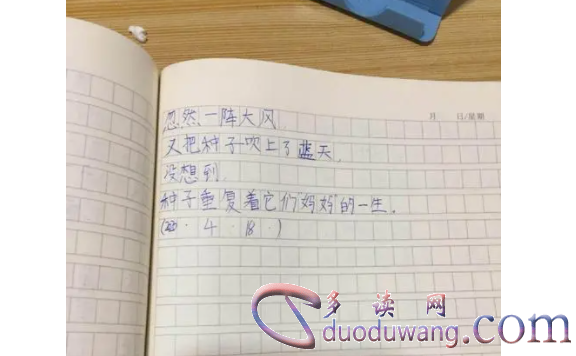 月 日/星期
忽然一阵大风,
又把种子吹上了蓝天,
没想到,
种子重复着它们“妈妈”的一生。
4 · 18 · )
多读网
duoduwang.com